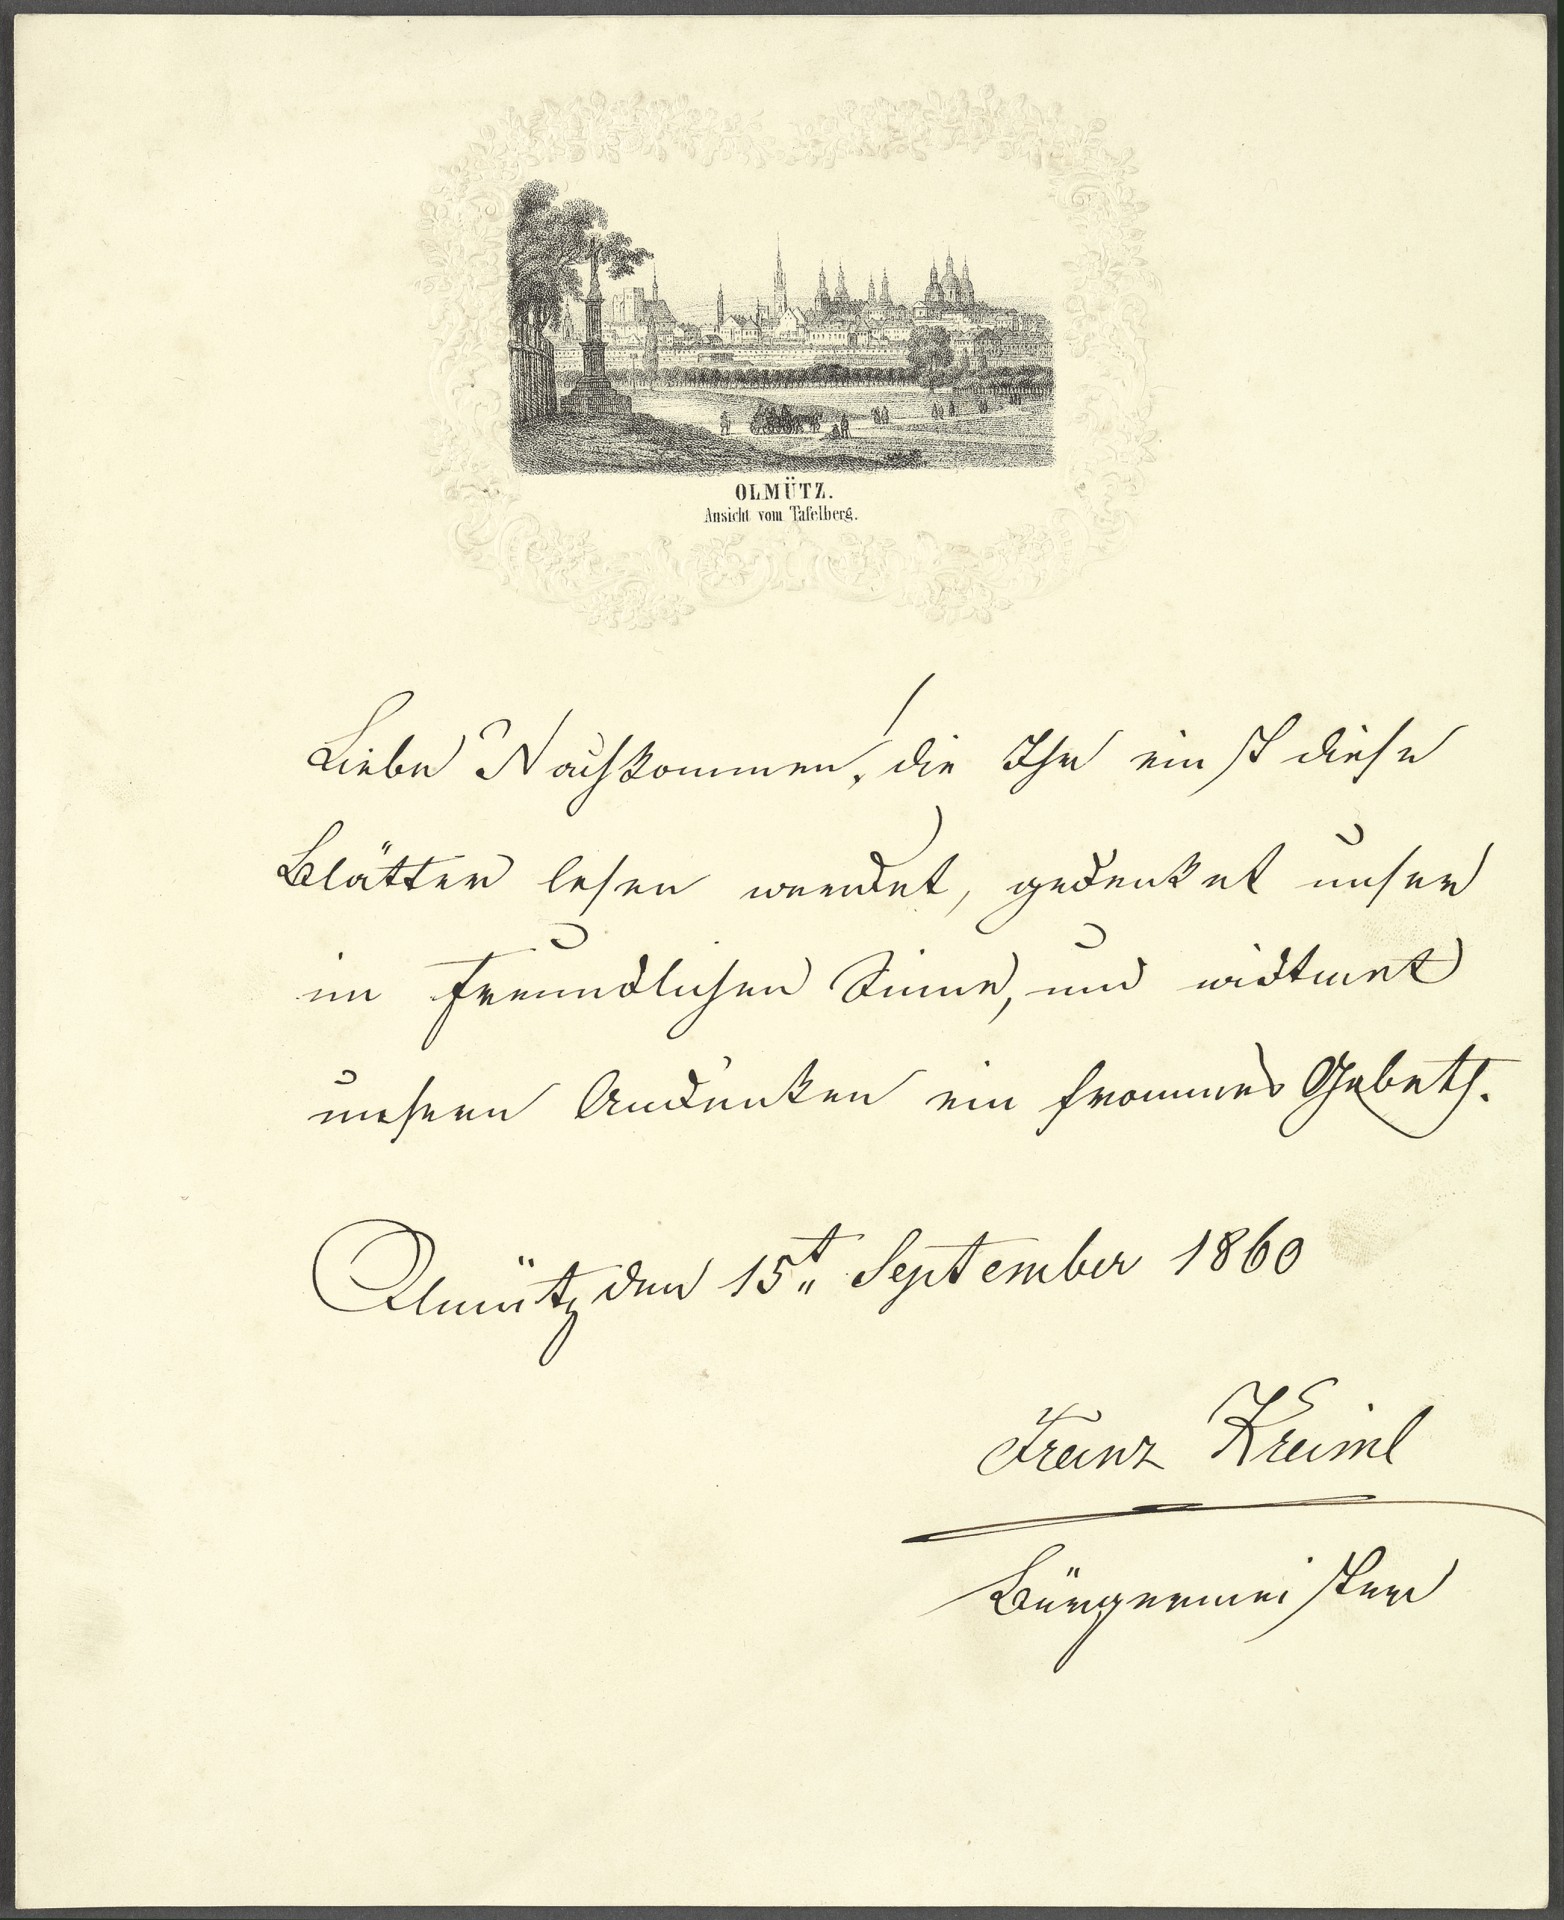 OLMÜTZ.
Ansicht vom Tafelberg.
Liebe Nachkommen! die Ihr einst diese
Blätter lesen werdet, gedenket unser
im freundlichen Sinne, und widmet
unsern Andenken ein frommes Gebeth.
Olmütz den 15t„ September 1860
Franz Kreiml
Bürgermeister